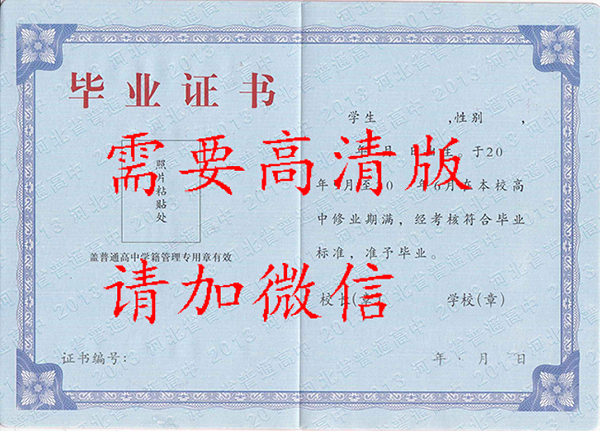 毕业证书
照片粘贴处
盖普通高中学籍管理专用章有效
证书编号：
学生　　，性别　，
年　月　日　生。于20
年9月至20　年6月在本校高
中修业期满，经考核符合毕业
标准，准予毕业。
校长(章)　学校(章)
年·月　日
需要高清版
请加微信